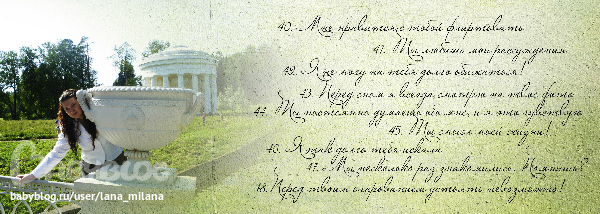 40. Мне нравится с тобой флиртовать.
41. Ты любишь мои рассуждения.
42. Я не могу на тебя долго обижаться!
43. Перед сном я всегда смотрю на твое фото.
44. Ты постоянно думаешь обо мне, и я это чувствую.
45. Ты смысл моей жизни!
46. Я так долго тебя искала.
47. Мы несколько раз знакомились. Помнишь?
48. Перед твоим очарованием устоять невозможно!
BABYBLOG
babyblog.ru/user/lana_milana